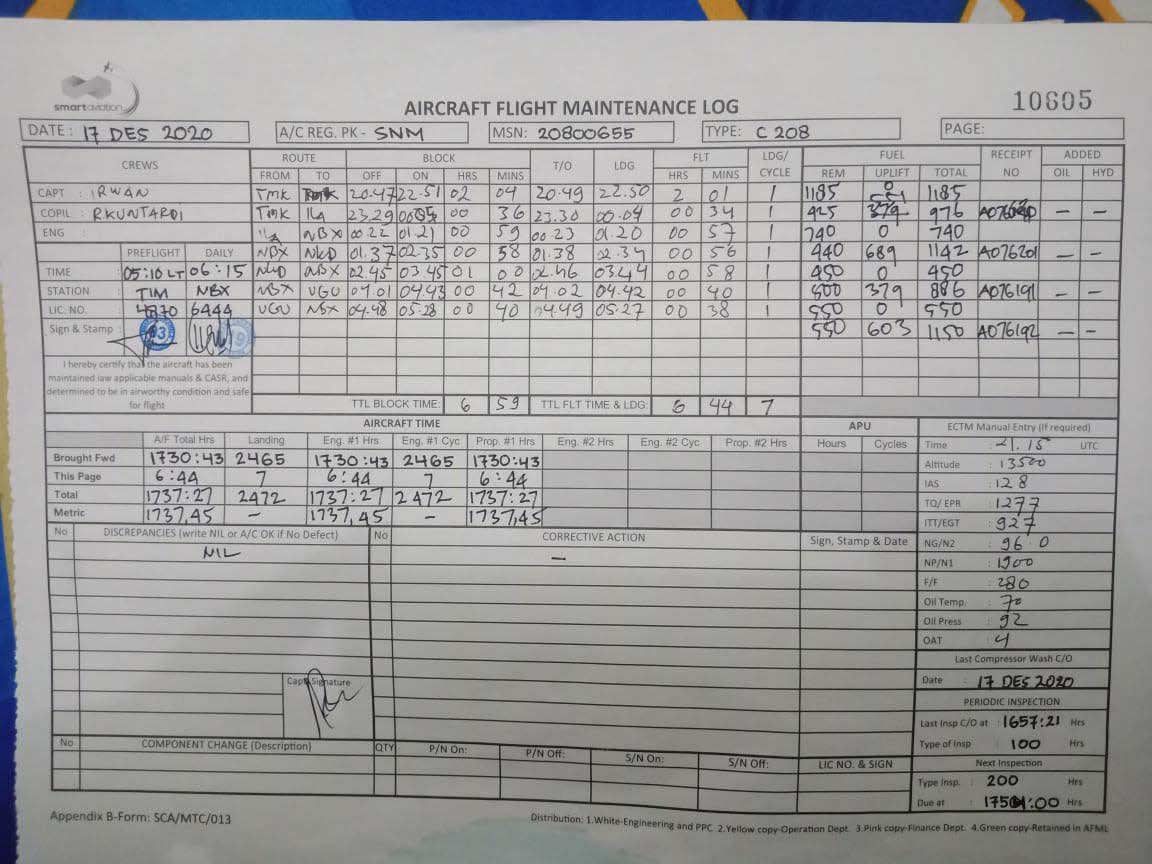 smartaviation
10605
AIRCRAFT FLIGHT MAINTENANCE LOG
DATE : 17 DES 2020 A/C REG. PK - SNM MSN: 20800655 TYPE: C 208 PAGE:
CREWS ROUTE BLOCK T/O LDG FLT LDG/CYCLE FUEL RECEIPT NO ADDED
FROM TO OFF ON HRS MINS HRS MINS REM UPLIFT TOTAL OIL HYD
CAPT : IRWAN TMK 20.47 22.51 02 04 20.49 22.50 2 01 1 1185 0 1185
COPIL : RKUNTARDI TMK ILA 23.29 00.05 00 36 23.30 00.04 00 34 1 425 976 — —
ENG : ILA NBX 00.22 01.21 00 59 00.23 01.20 00 57 1 740 0 740
PREFLIGHT DAILY NBX NKD 01.37 02.35 00 58 01.38 02.34 00 56 1 440 689 1142 A076201 — —
TIME : 05:10 LT 06:15 NKD NBX 02.45 03.45 01 00 02.46 03.44 00 58 1 450 0 450
STATION : TIM NBX NBX UGU 04.01 04.43 00 42 04.02 04.42 00 40 1 500 379 886 A076191 — —
LIC. NO. : 4870 6444 UGU NBX 04.48 05.28 00 40 04.49 05.27 00 38 1 550 0 550
Sign & Stamp : 550 603 1150 A076192 — —
I hereby certify that the aircraft has been
maintained iaw applicable manuals & CASR, and
determined to be in airworthy condition and safe
for flight
TTL BLOCK TIME: 6 59 TTL FLT TIME & LDG: 6 44 7
AIRCRAFT TIME APU ECTM Manual Entry (If required)
A/F Total Hrs Landing Eng. #1 Hrs Eng. #1 Cyc Prop. #1 Hrs Eng. #2 Hrs Eng. #2 Cyc Prop. #2 Hrs Hours Cycles Time : 21.15 UTC
Brought Fwd 1730:43 2465 1730:43 2465 1730:43 Altitude : 13500
This Page 6:44 7 6:44 7 6:44 IAS : 128
Total 1737:27 2472 1737:27 2472 1737:27 TQ/ EPR : 1277
Metric 1737,45 – 1737,45 – 1737,45 ITT/EGT : 927
No DISCREPANCIES (write NIL or A/C OK if No Defect) No CORRECTIVE ACTION Sign, Stamp & Date NG/N2 : 96.0
NIL — NP/N1 : 1900
F/F : 280
Oil Temp. : 70
Oil Press : 92
OAT : 4
Last Compressor Wash C/O
Capt. Signature Date : 17 DES 2020
PERIODIC INSPECTION
Last Insp C/O at : 1657:21 Hrs
Type of Insp : 100 Hrs
No COMPONENT CHANGE (Description) QTY P/N On: P/N Off: S/N On: S/N Off: LIC NO. & SIGN Next Inspection
Type Insp. : 200 Hrs
Due at : Hrs
Appendix B-Form: SCA/MTC/013
Distribution: 1.White-Engineering and PPC 2.Yellow copy-Operation Dept. 3.Pink copy-Finance Dept. 4.Green copy-Retained in AFML